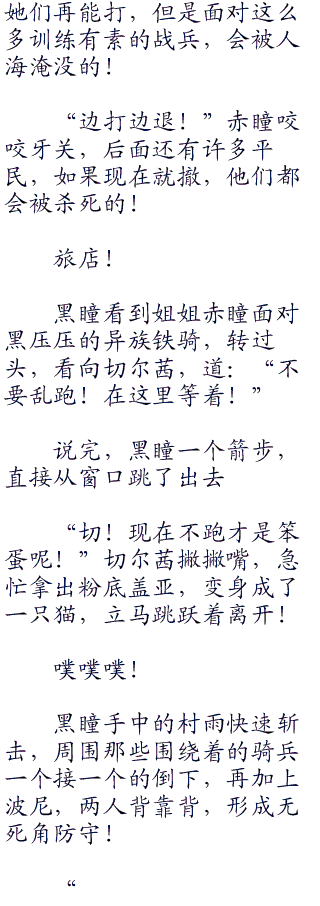 她们再能打，但是面对这么
多训练有素的战兵，会被人
海淹没的！
“边打边退！”赤瞳咬
咬牙关，后面还有许多平
民，如果现在就撤，他们都
会被杀死的！
旅店！
黑瞳看到姐姐赤瞳面对
黑压压的异族铁骑，转过
头，看向切尔茜，道：“不
要乱跑！在这里等着！”
说完，黑瞳一个箭步，
直接从窗口跳了出去
“切！现在不跑才是笨
蛋呢！”切尔茜撇撇嘴，急
忙拿出粉底盖亚，变身成了
一只猫，立马跳跃着离开！
噗噗噗！
黑瞳手中的村雨快速斩
击，周围那些围绕着的骑兵
一个接一个的倒下，再加上
波尼，两人背靠背，形成无
死角防守！
“